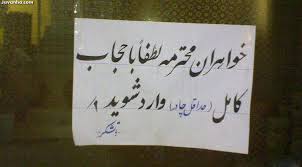 Juvanha.com
خواهران محترمه لطفاً با حجاب
کامل (حداقل چادر) وارد شوید
باتشکر